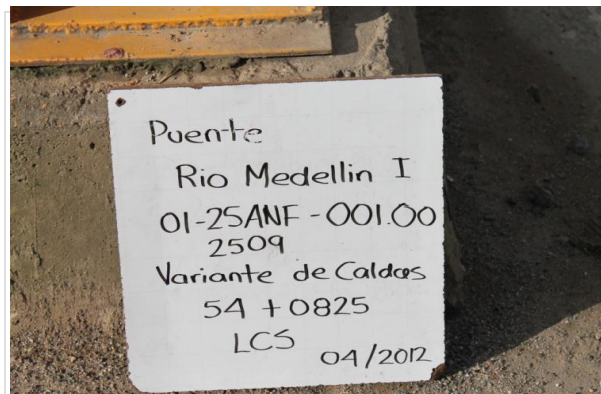 Puente
Rio Medellin I
01-25ANF-001.00
2509
Variante de Caldas
54 + 0825
LCS
04/2012